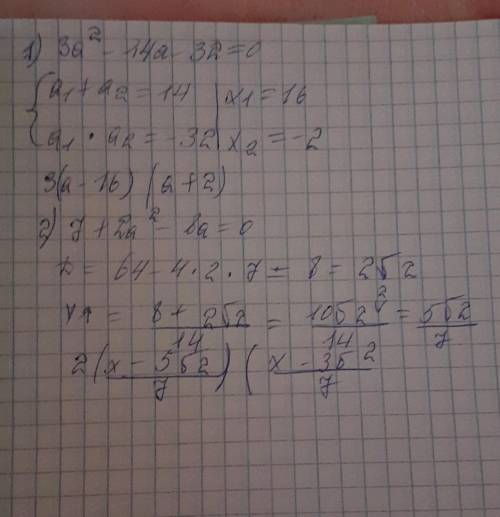 1) 3a² - 14a - 32 = 0
{ a₁ + a₂ = 14 | x₁ = 16
a₁ · a₂ = -32 | x₂ = -2
3(a - 16) (a + 2)
2) 7 + 2a² - 8a = 0
D = 64 - 4 · 2 · 7 = 8 = 2√2
x₁ = (8 + 2√2)/14 = (10√2)/14 = (5√2)/7
2(x - 5√2/7) (x - 3√2/7)